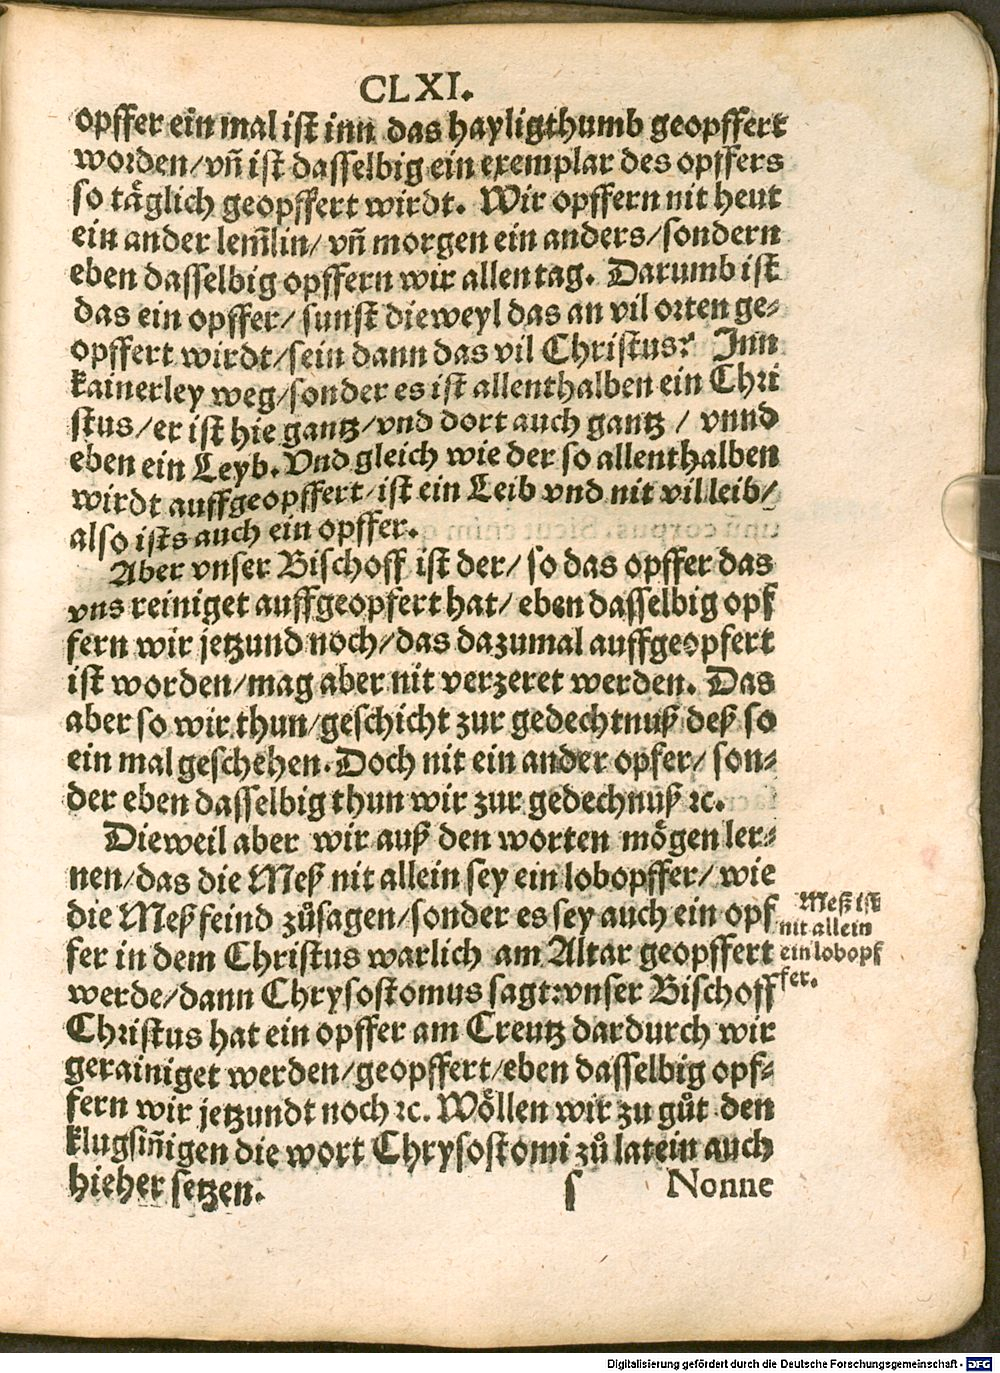 CLXI.
opffer ein mal ist inn das hayligthumb geopffert
worden/vñ ist dasselbig ein exemplar des opffers
so täglich geopffert wirdt. Wir opffern nit heut
ein ander lem̃lin/ vñ morgen ein anders/sondern
eben dasselbig opffern wir allen tag. Darumb ist
das ein opffer/ sunst dieweyl das an vil orten ge-
opffert wirdt/sein dann das vil Christus? Inn
kainerley weg/sonder es ist allenthalben ein Chri
stus/er ist hie gantz/vnd dort auch gantz / vnnd
eben ein Leyb. Vnd gleich wie der so allenthalben
wirdt auffgeopffert/ist ein Leib vnd nit vil leib/
also ists auch ein opffer.
Aber vnser Bischoff ist der/ so das opffer das
vns reiniget auffgeopfert hat/ eben dasselbig opf
fern wir jetzund noch/das dazumal auffgeopfert
ist worden/mag aber nit verzeret werden. Das
aber so wir thun/geschicht zur gedechtnuß deß so
ein mal geschehen. Doch nit ein ander opfer/ son-
der eben dasselbig thun wir zur gedechnuß ꝛc.
Dieweil aber wir auß den worten mögen ler-
nen/das die Meß nit allein sey ein lobopffer/ wie
die Meß feind zůsagen/sonder es sey auch ein opf
fer in dem Christus warlich am Altar geopffert
werde/dann Chrysostomus sagt:vnser Bischoff
Christus hat ein opffer am Creutz dardurch wir
gerainiget werden/geopffert/eben dasselbig opf-
fern wir jetzundt noch ꝛc. Wöllen wir zu gůt den
klugsiñigen die wort Chrysostomi zů latein auch
hieher setzen.
s Nonne
Meß ist
nit allein
ein lobopf
fer.
Digitalisierung gefördert durch die Deutsche Forschungsgemeinschaft - DFG